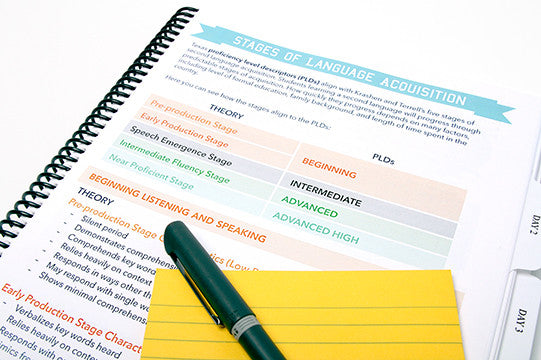 STAGES OF LANGUAGE ACQUISITION
Texas proficiency level descriptors (PLDs) align with Krashen and Terrell's five stages of
second language acquisition. Students learning a second language will progress through
predictable stages of acquisition. How quickly they progress depends on many factors,
including level of formal education, family background, and length of time spent in the
country.
Here you can see how the stages align to the PLDs:
THEORY PLDs
Pre-production Stage
Early Production Stage BEGINNING
Speech Emergence Stage INTERMEDIATE
Intermediate Fluency Stage ADVANCED
Near Proficient Stage ADVANCED HIGH
BEGINNING LISTENING AND SPEAKING
THEORY
Pre-production Stage (Low
- Silent period
- Demonstrates comprehens
- Comprehends key words
- Relies heavily on context
- Responds in ways other tha
- May respond with single w
- Shows minimal comprehens
Early Production Stage Charact
- Verbalizes key words heard
- Relies heavily on context
- Responds with
DAY 2
DAY 3